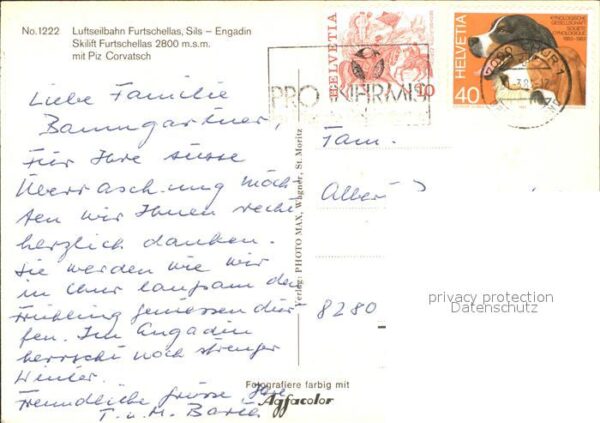 No. 1222 Luftseilbahn Furtschellas, Sils – Engadin
Skilift Furtschellas 2800 m.s.m.
mit Piz Corvatsch
HELVETIA
10
HELVETIA
40
KYNOLOGISCHE
GESELLSCHAFT
SOCIETE
CYNOLOGIQUE
1883-1983
PRO
Liebe Familie
Baumgartner,
Für Ihre süsse
Überraschung möch
ten wir Ihnen recht
herzlich danken.
Sie werden wie wir
in Chur langsam den
Frühling geniessen dür
fen. Im Engadin
herrscht noch strenger
Winter.
Freundliche Grüsse, Ihre
T. u. M.
Verlag: PHOTO MAX, Wagner, St. Moritz
Fam.
Alber
8280
privacy protection
Datenschutz
Fotografiere farbig mit
Agfacolor